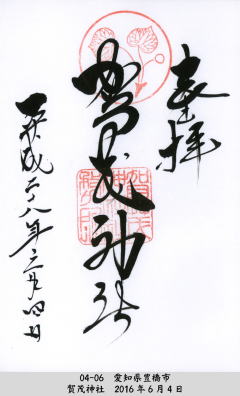 奉拝
賀茂神社
平成二八年六月四日
04-06 愛知県豊橋市
賀茂神社 2016年6月4日